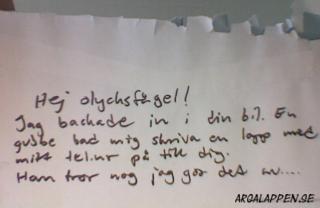 Hej olycksfågel!
Jag backade in i din bil. En
gubbe bad mig skriva en lapp med
mitt tel.nr på till dig.
Han tror nog jag gör det nu....
ARGALAPPEN.SE